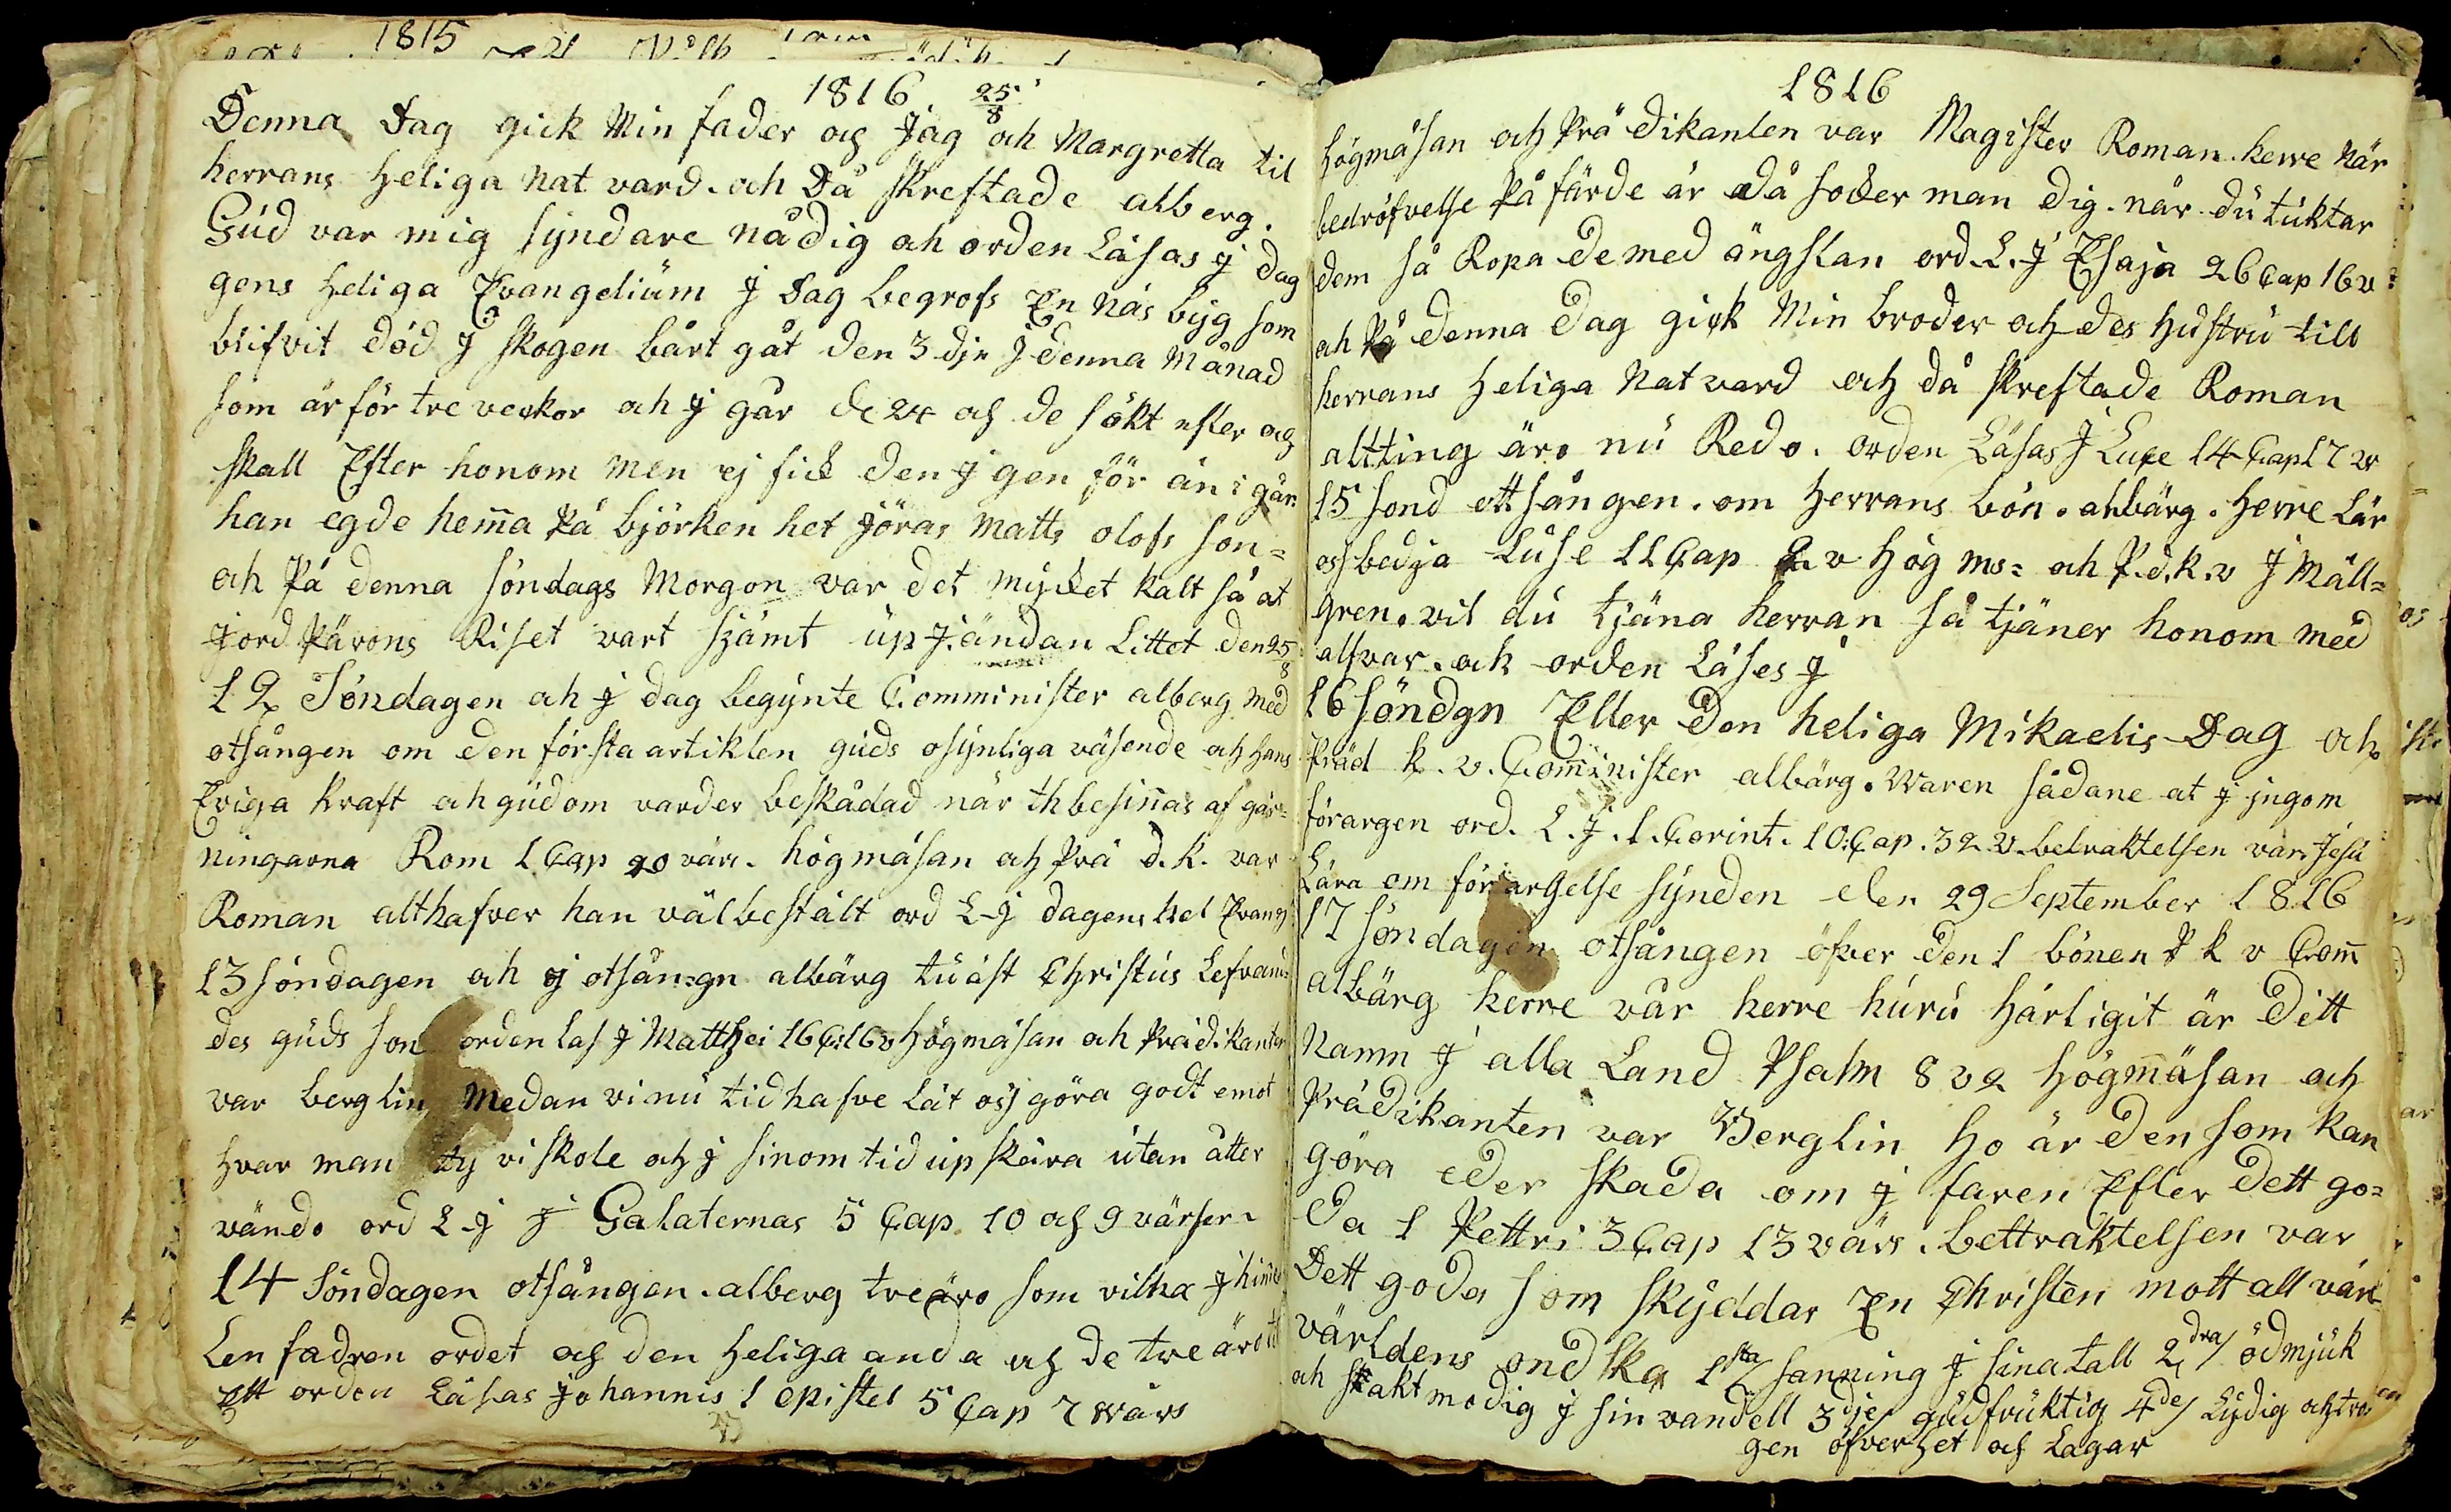 1815
1816 25/8
Denna Dag gick Min fader og Jag och Margretta til
herrans heliga Natvard. och Då skreftade alberg.
Gud var mig syndare nådig ah orden Läsas j dag
gens heliga Evangelium J Dag begrofs En näs byg som
blifvit död J skogen bårt gåt den 3 dje J denna Månad
som är för tre veckor ah j går de 24 og de sökt efter og
skall Efter honom men ej fick den j gen för än i går.
han egde hem̄a På björken het Jöras Matts olofs son=
och På denna söndags Morgon var det mycket kalt så at
Jord Pärons Riset vart skämt up J ändan Littet den 25/8
12 Söndagen ah j dag begynte Comminister alberg med
otsången om den första artiklen guds osynliga väsende och hans
Eviga kraft ah gudom varder beskådad när th besin̄as af gär=
ningarna Rom 1 Cap 20 värs. högmäsan och Prä d.k. var
Roman alt hafver han väl bestält ord L-j dagens hel Evang
13 söndagen ah j otsångn albärg tu äst Christus Lefvand
des guds son orden Las j Matthei 16 C: 16 v högmäsan ah Prädikanten
var berglin Medan vi nu tid hafve Låt oss göra godt emot
hvar man ty vi skole och j sinom tid upskära utan åtter
vändo ord L-j J Galaternas 5 Cap 10 och 9 värser.
14 Söndagen otsången. alberg tre äro som vitna j him̄e
Len fadren ordet och den heliga anda och de tre äro
Ett orden Läsas Johannis 1 epistel 5 Cap 7 värs
1816
högmäsan och Prädikanten var Magister Roman. herre när
bedröfvelse På färde är då söker man dig. när du tuktar
dem så Ropa de med ängslan ord. L. J Esaja 26 Cap 16 v:
ah På denna Dag gick Min broder och des hustru till
herrans heliga Natvard och då skreftade Roman
altting äro nu Redo. orden Läsas J Luce 14 Cap 17 v
15 sond ottsången. om herrans bön. ahbärg. herre Lär
oss bedja Luse 11 Cap v hög ms= ah P.d.k.v J Mäll=
gren. vil du tjäna herran så tjäner honom med
alfvar. ah orden Läses j
16 söndgn Eller Den heliga Mikaelis Dag och
Präd k. v. Com̄inister albärg. Waren sådane at j jngom
förargen ord. L. J. 1. Corint. 10: Cap. 32 v. betraktelsen var Jesu
Lära om förargelse synden den 29 September 1816
17 söndagen otsången öfver den 1 bönen P k v Com̄
albärg herre vår herre huru härligit är Ditt
Namn J alla Land Psalm 8 v 2 högm̄äsan och
Prädikanten var Berglin ho är den som kan
göra eder skada om j faren Efter Dett go=
da 1 Pettri 3 Cap 13 värs. bettraktelsen var
Dett goda som skyddar En Christen mott all värl
världens ondska 1sta/ sanning J sina tall 2dra/ ödmjuk
ah sakt modig j sin vandell 3dje/ gudfruktig 4de/ Lydig och tro
gen öfverhet och Lagar